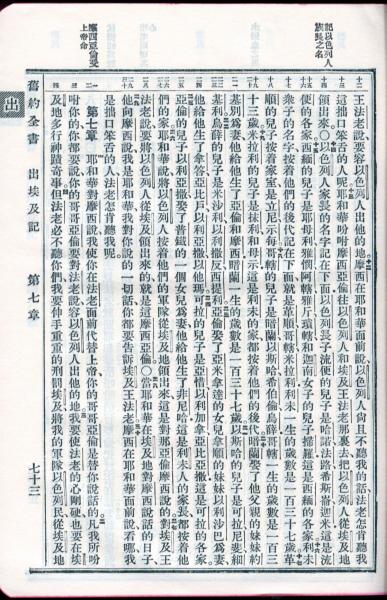 記以色列人
族長之名
摩西亞倫受
上帝命
王法老說要容以色列人出他的地摩西在耶和華面前說以色列人尚且不聽我的話法老怎肯聽我
這拙口笨舌的人呢耶和華吩咐摩西亞倫往以色列人和埃及王法老那裏去把以色列人從埃及地
領出來○以色列人家長的名字記在下面以色列長子流便的兒子是哈諾法路希斯崙迦米這是流
便的各家西緬的兒子是耶母利雅憫阿轄雅斤瑣轄和迦南女子的兒子掃羅這是西緬的各家利未
衆子的名字按着他們的後代記在下面就是革順哥轄米拉利利未一生的歲數是一百三十七歲革
順的兒子按着家室是立尼示每哥轄的兒子是暗蘭以斯哈希伯倫烏薛哥轄一生的歲數是一百三
十三歲米拉利的兒子是抹利和母示這是利未的家都按着他們的後代暗蘭娶了他父親的妹妹約
基別爲妻他給他生了亞倫和摩西暗蘭一生的歲數是一百三十七歲以斯哈的兒子是可拉尼斐細
基利烏薛的兒子是米沙利以利撒反西提利亞倫娶了亞米拿達的女兒拿順的妹妹以利沙巴爲妻
他給他生了拿答亞比戶以利亞撒以他瑪可拉的兒子是亞惜以利加拿亞比亞撒這是可拉的各家
亞倫的兒子以利亞撒娶了普鐵的一個女兒爲妻他給他生了非尼哈這是利未人的家長都按着他
們的家耶和華說將以色列人按着他們的軍隊從埃及地領出來這是對那亞倫摩西說的對埃及王
法老說要將以色列人從埃及領出來的就是這摩西亞倫○當耶和華在埃及地對摩西說話的日子
他向摩西說我是耶和華我對你說的一切話你都要告訴埃及王法老摩西在耶和華面前說看哪我
是拙口笨舌的人法老怎肯聽我呢
第七章 耶和華對摩西說我使你在法老面前代替上帝你的哥哥亞倫是替你說話的凡我所吩
咐你的你都要說你的哥哥亞倫要對法老說容以色列人出他的地我要使法老的心剛硬也要在埃
及地多行神蹟奇事但法老必不聽你們我要伸手重重的刑罰埃及將我的軍隊以色列民從埃及地
舊約全書 出埃及記 第七章 七十三
出